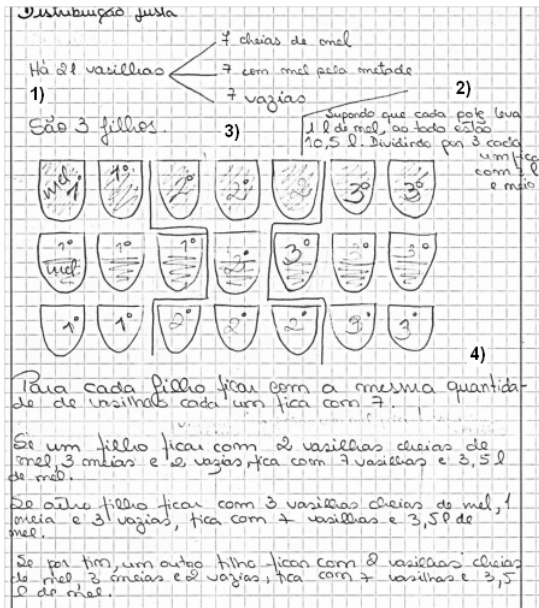 Distribuição justa
7 cheias de mel
Há 21 vasilhas
7 com mel pela metade
7 vazias
1)
2)
São 3 filhos.
3)
Supondo que cada pote leva
1 l de mel, ao todo estão
10,5 l. Dividindo por 3 cada
um fica
com 3 l
e meio
mel 1º 1º 2º 2º 2 3º 3º
1º mel 1º 1º 2º 3º 3º 3º
1º 1º 2º 2º 2º 3º 3º
4)
Para cada filho ficar com a mesma quantida-
de de vasilhas cada um fica com 7.
Se um filho ficar com 2 vasilhas cheias de
mel, 3 meias e 2 vazias, fica com 7 vasilhas e 3,5 l
de mel.
Se outro filho ficar com 3 vasilhas cheias de mel, 1
meia e 3 vazias, fica com 7 vasilhas e 3,5 l de
mel.
Se por fim, um outro filho ficar com 2 vasilhas cheias
de mel, 3 meias e 2 vazias, fica com 7 vasilhas e 3,5
l de mel.